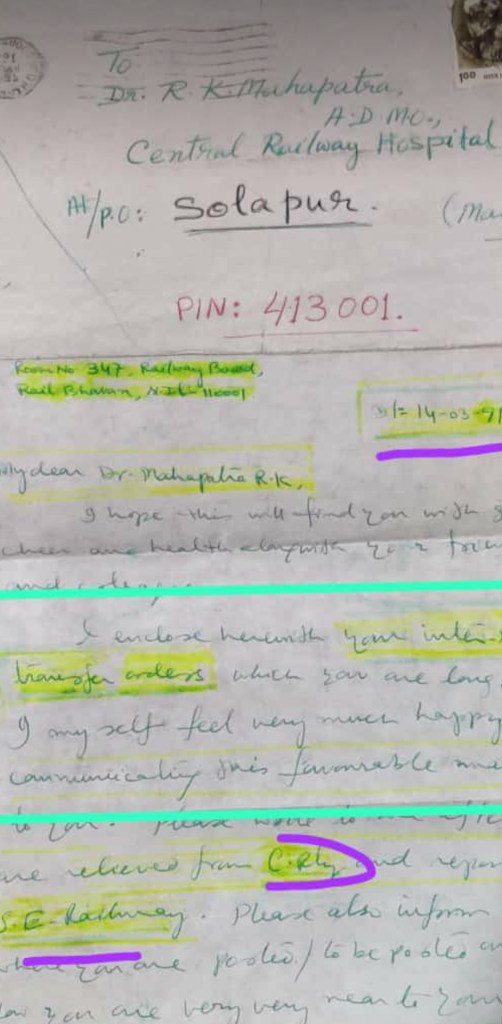 To
Dr. R. K. Mahapatra,
A.D MO.,
Central Railway Hospital
At/P.O: Solapur. (Ma
PIN: 413001.
100
Room No 347, Railway Board,
Rail Bhavan, N.DL-110001
D/= 14-03-91
My dear Dr. Mahapatra R.K,
I hope this will find you with g
cheer and health alongwith your frien
and
I enclose herewith your inter-
transfer orders which you are long
I my self feel very much happy
communicating this favourable
to you. Please
are relieved from C.Rly and repor
S.E. Railway. Please also inform
where you are posted/to be posted
you are very very near to your